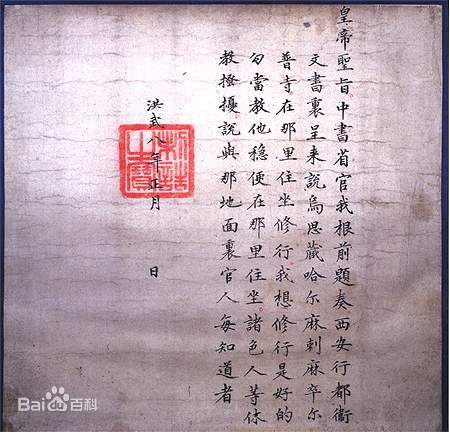 皇帝聖旨中書省官我根前題奏西安行都衞
文書裏呈来説烏思藏哈尔麻剌麻卒尔
普寺在那里住坐修行我想修行是好的
勾當教他穩便在那里住坐諸色人等休
教搔擾説與那地面裏官人每知道者
洪武八年正月 日
制誥之寶
Bai du 百科